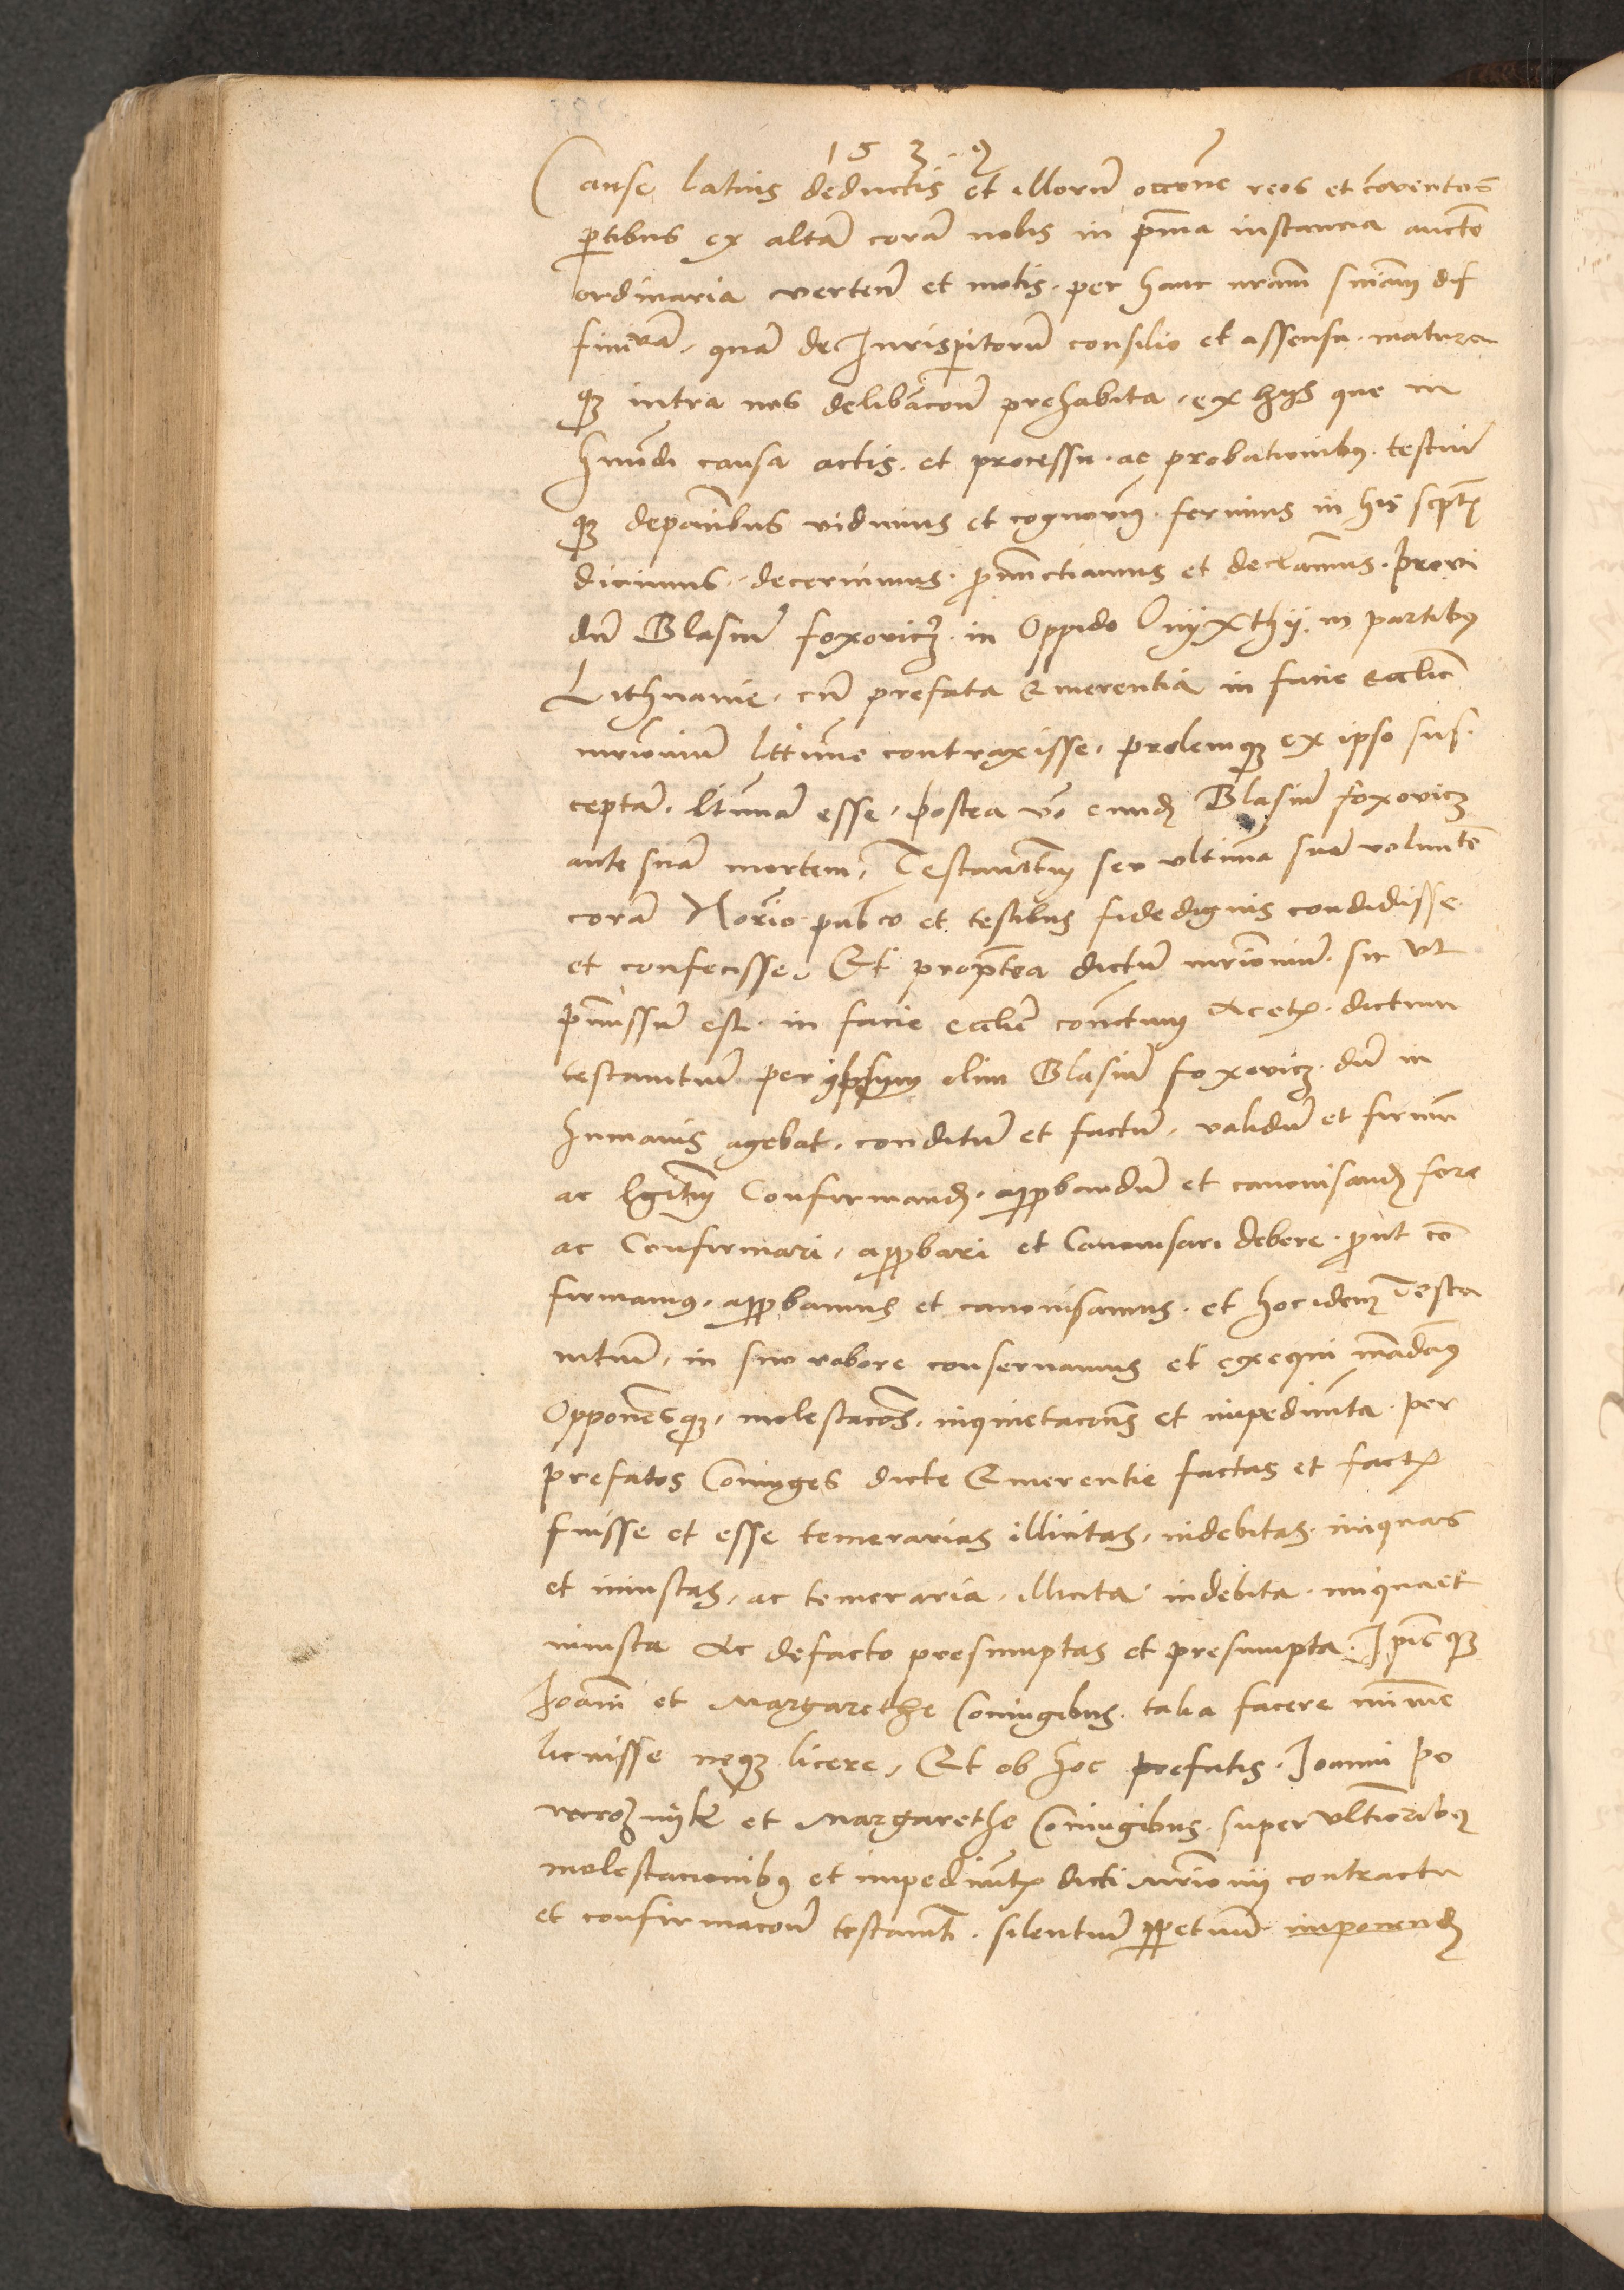 1539
Cause latius deductis et illorũ occõne reos et cõventos
ꝑtibus ex altã corã nobis in pr̃ma instancia aucte
ordinaria verteñ et motis. per hanc nr̃am sniam dif
finivã, quã de Jurisꝑitorũ consilio et assensu. matura
qꝫ intra nos delibãcoñ prehabita, ex hijs que in
hmõi causa actis. et processu. ac probationibꝯ. testiũ
qꝫ depõnibus vidimus et cognovimꝯ. ferimus in his scptꝭ
dicimus, decernimus. ꝓnũctiamus et declaramus. Provi
dũ Blasiũ foxovicz. in Oppido Onyxthy. in partibꝯ
Lithuanie, cũ prefata Emerentia in facie ecclie
mr̃imoniũ lttime contraxisse, prolemqꝫ ex ipso sus-
ceptã, lttimã esse, postea vo eundꝫ Blasiũ foxovicz
ante suã mortem, Testamtum seu ultimã suã voluntẽ
corã Notrio pubco et testibus fidedignis condidisse
et confecisse, Et propterea dictũ mr̃imoniũ. sic ut
p̃missũ est. in facie ecclie contractum Acetꝫ. dictum
testamtum per ypsum olim Blasiũ foxovicz. dũ in
humanis agebat, conditũ et factũ, validũ et firmũ
ac legittimũ Confirmandꝫ. approbandũ et canonisandꝫ fore
ac Confirmari, approbari et Canonisari debere. ꝓut cõ
firmamꝯ, approbamus et canonisamus. et hoc idem Testa
mtum, in suo robore conservamus et exequi mãdamꝯ
Opponesqꝫ, molestacõs, inquietacões et impedimẽta. per
prefatos Coniuges dicte Emerentie factas et facta
fuisse et esse temerarias illicitas, indebitas. iniquas
et iniustas, ac temeraria, illicita indebita. iniqua et
iniusta Ac defacto presumptas et presumpta. Ipisqꝫ
Joanni et Margarethe Coniugibus. talia facere minime
licuisse neqꝫ licere, Et ob hoc prefatis. Joanni Po
et Margarethe Coniugibus. super ulterioribꝯ
molestacionibꝯ et impedimẽtꝭ dicti mr̃imonij contractu
et confirmacoñ testamti. silentiũ ꝑpetuũ imponendꝫ